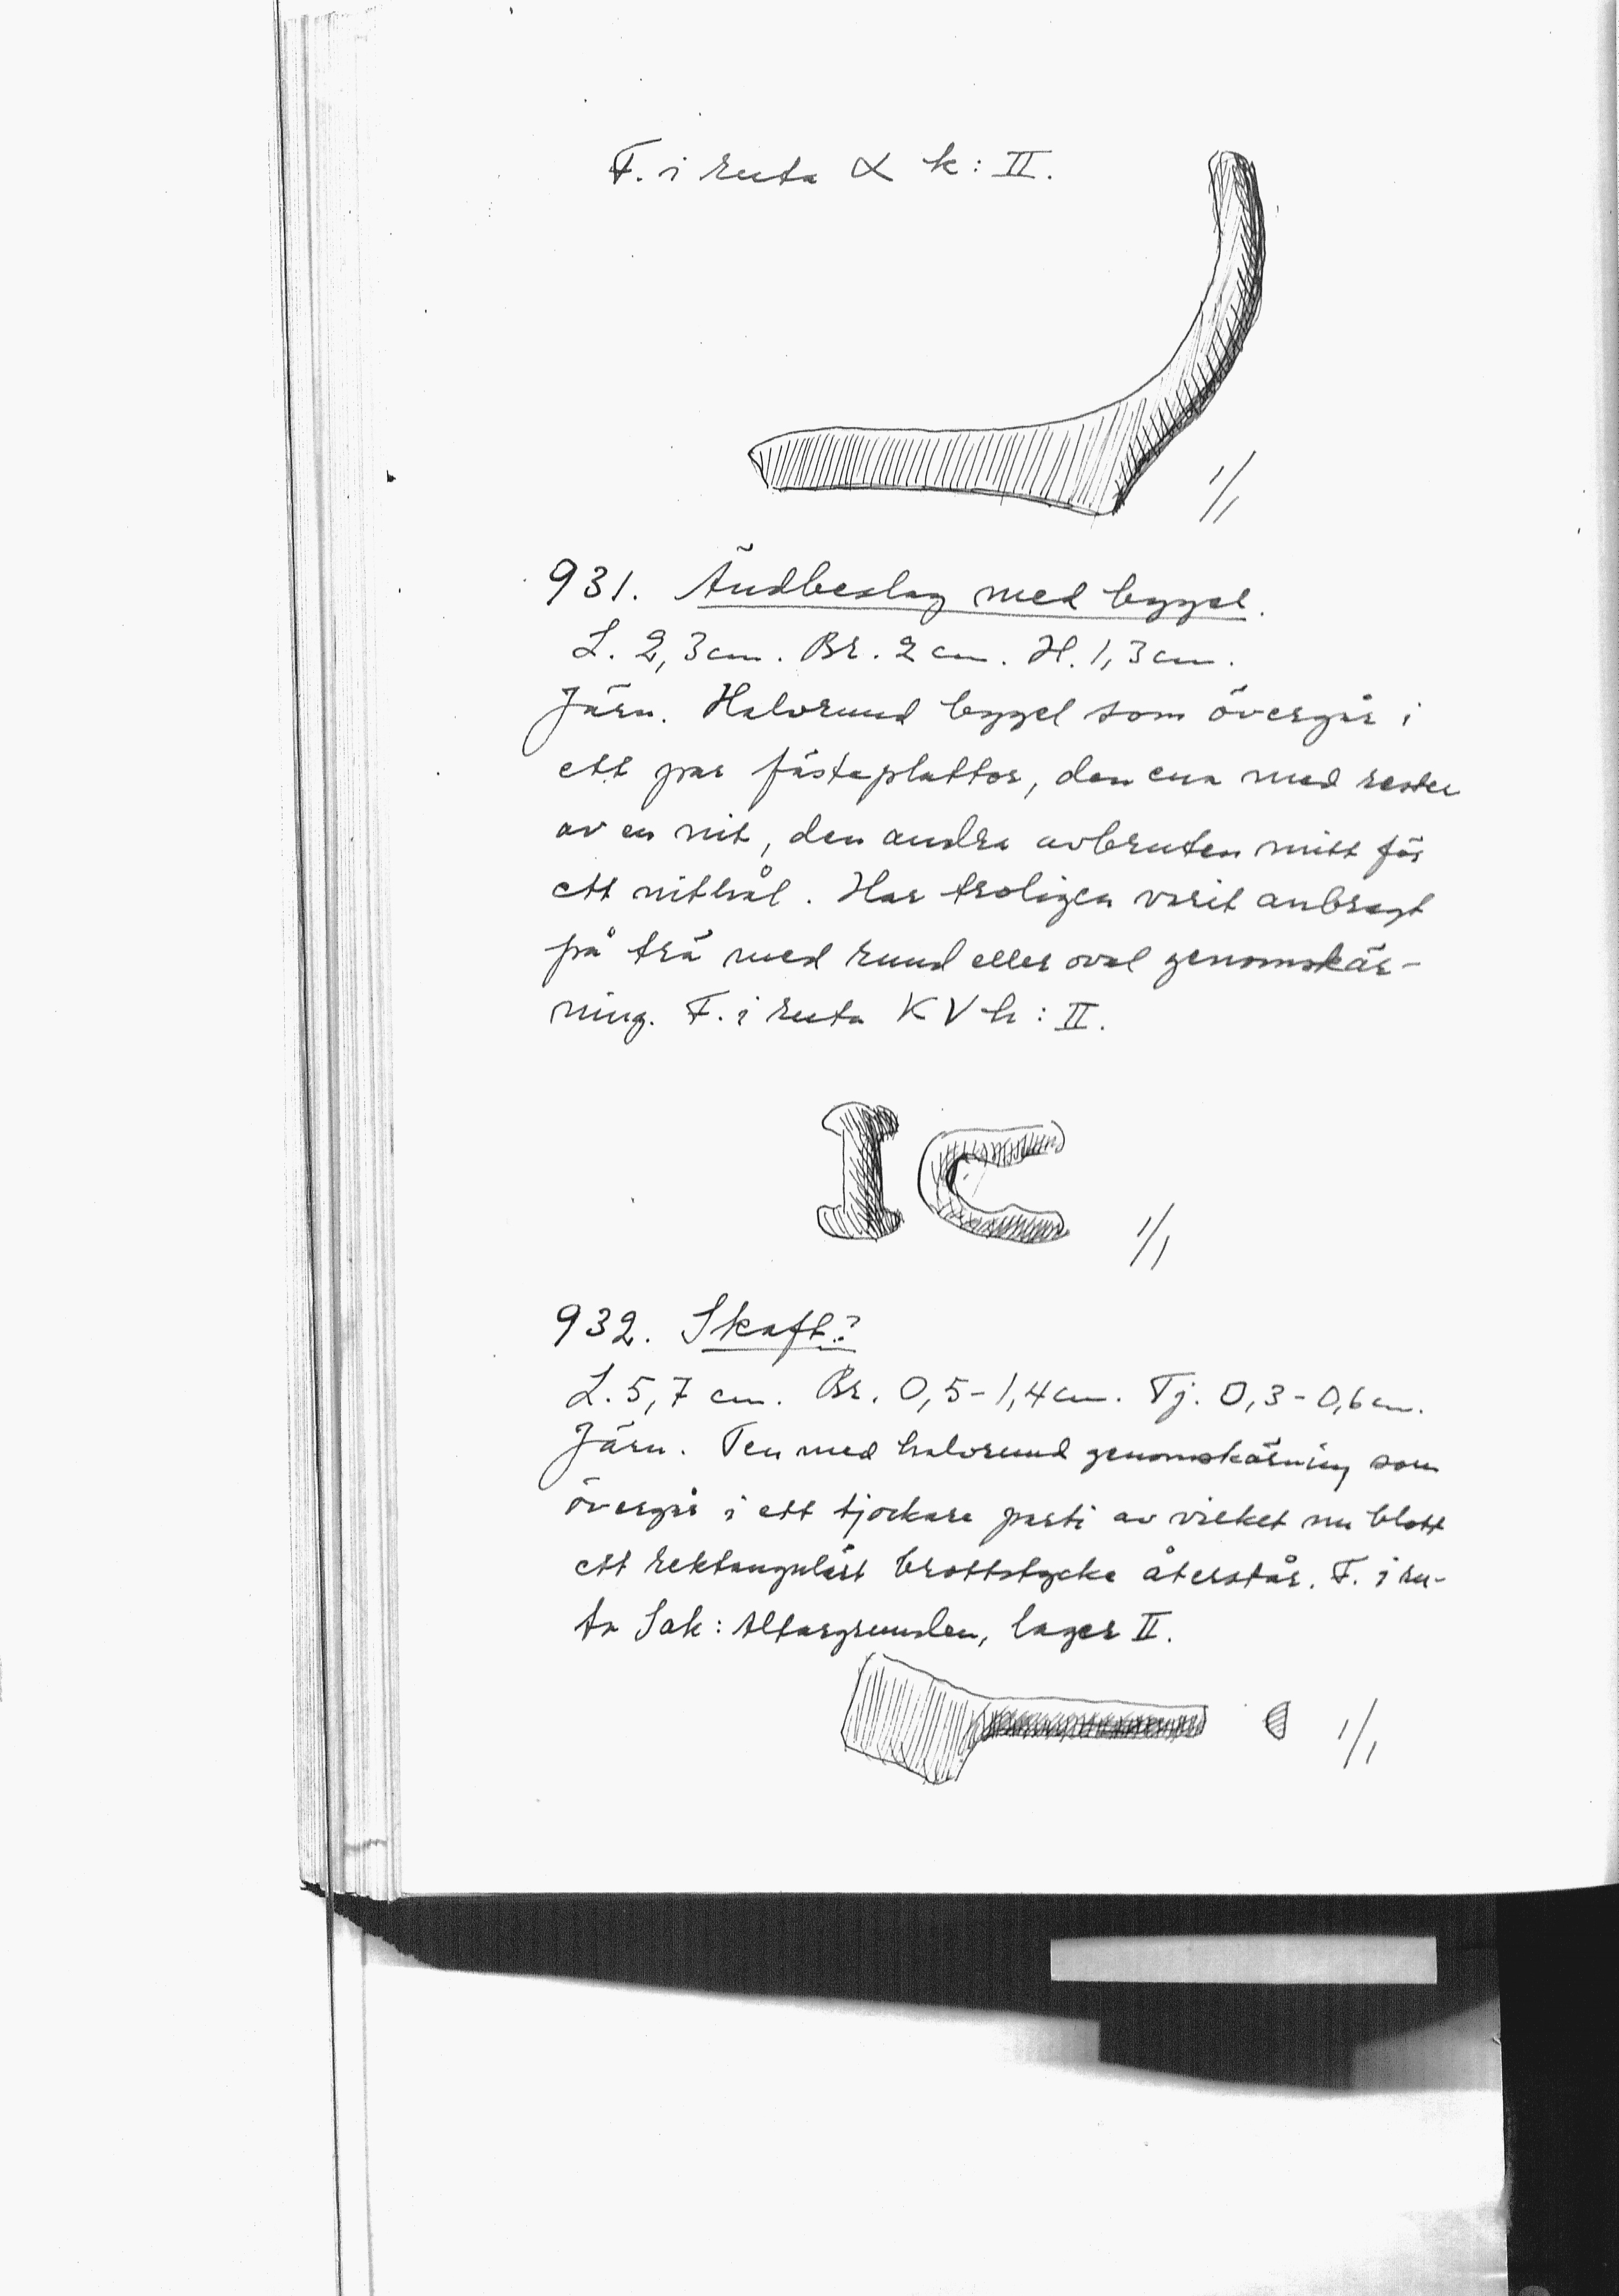 F. i ruta α k: II.
1/1
931. Ändbeslag med bygel.
L. 2,3 cm. Br. 2 cm. H. 1,3 cm.
Järn. Halvrund bygel som övergår i
ett par fästeplattor, den ena med rester
av en nit, den andra avbruten mitt för
ett nithål. Har troligen varit anbragt
på trä med rund eller oval genomskär-
ning. F. i ruta KV h: II.
1/1
932. Skaft?
L. 5,7 cm. Br. 0,5-1,4 cm. Tj. 0,3-0,6 cm.
Järn. Ten med halvrund genomskärning som
övergår i ett tjockare parti av vilket nu blott
ett rektangulärt brottstycke återstår. F. i ru-
ta Sak: Altargrunden, lager II.
1/1